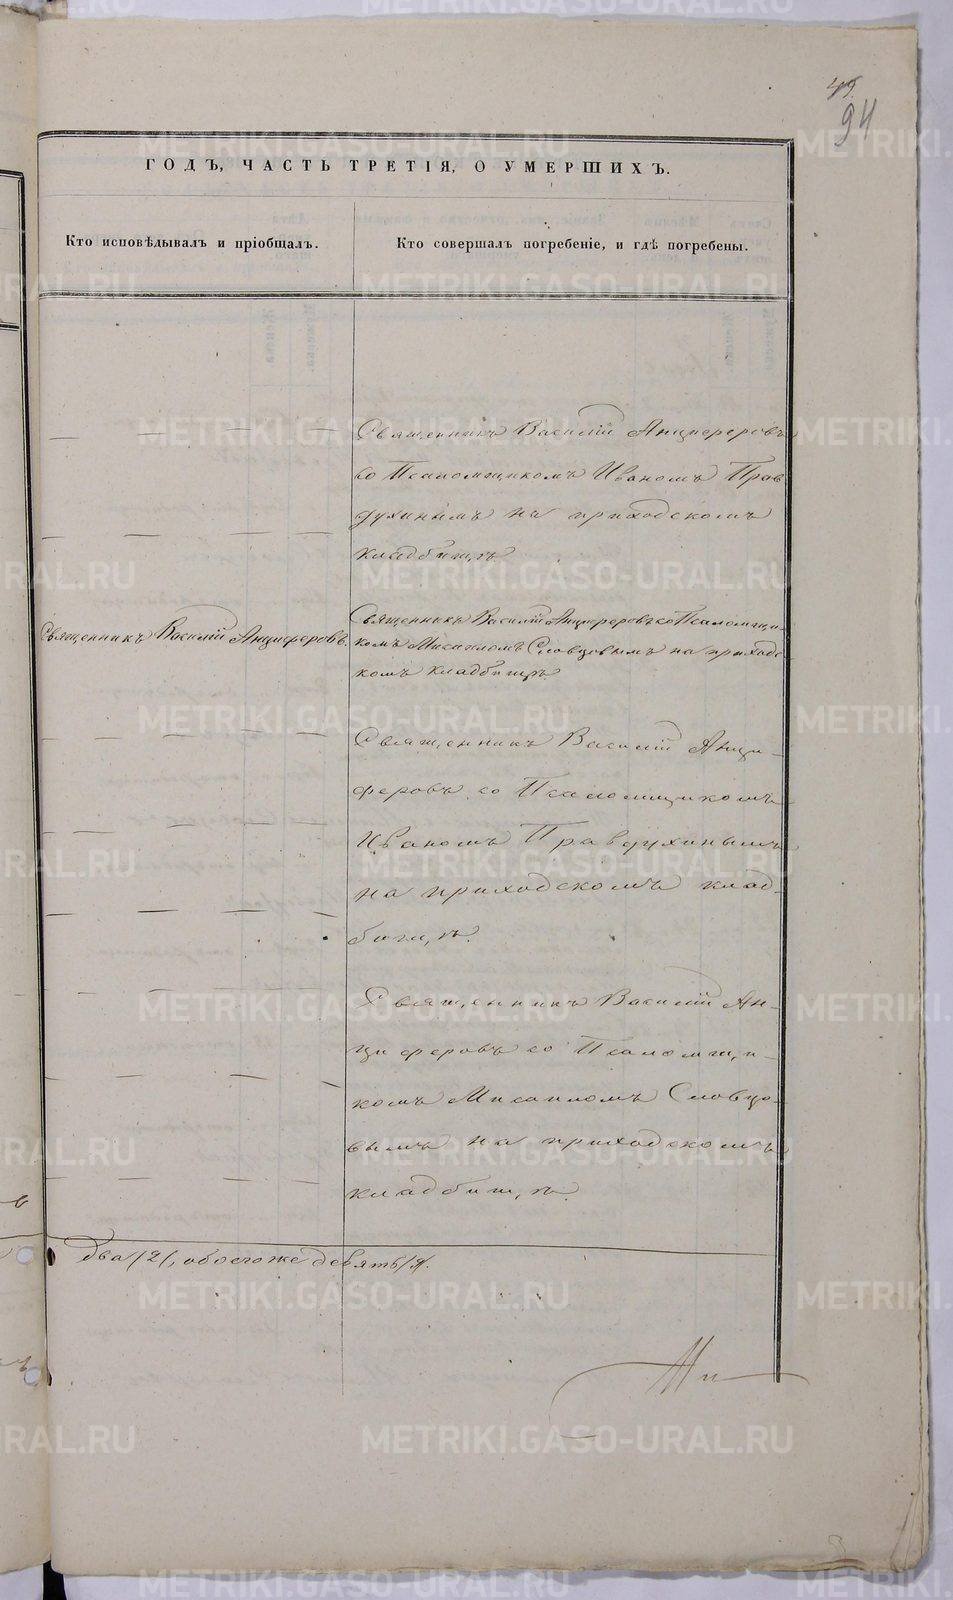 94
ГОДЪ, ЧАСТЬ ТРЕТІЯ, О УМЕРШИХЪ.
Кто исповѣдывалъ и пріобщалъ.
Кто совершалъ погребеніе, и гдѣ погребены.
Священникъ Василій Анциферовъ
со Псаломщикомъ Иваномъ Прав
духинымъ на приходскомъ
кладбищѣ
Священникъ Василій Анциферовъ.
Священникъ Василій Анциферовъ со Псаломщи-
комъ Мисаиломъ Словцовымъ на приходс
комъ кладбищѣ
Священникъ Василій Анци-
феровъ со Псаломщикомъ
Иваномъ Правдухинымъ
на приходскомъ клад-
бищѣ.
Священникъ Василій Ан-
циферовъ со Псаломщи-
комъ Мисаиломъ Словцо-
вымъ на приходскомъ
кладбищѣ.
два /2/, обоегоже девять /9/.
METRIKI.GASO-URAL.RU